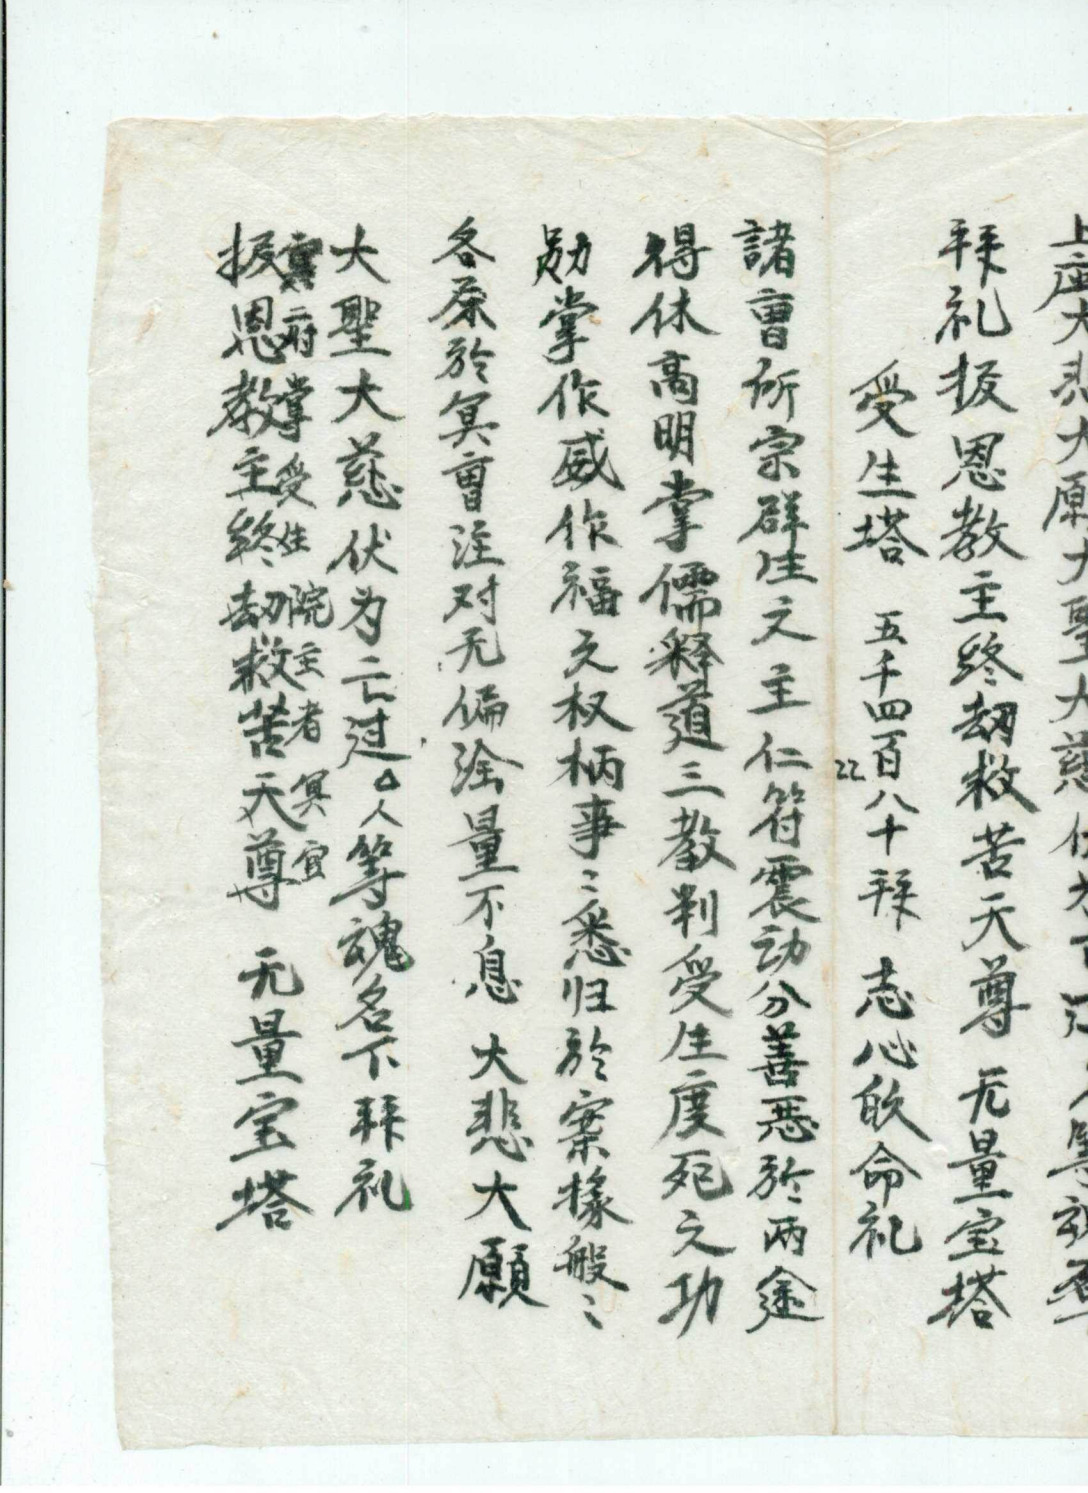 上座大悲大愿大圣大慈伏为亡过人等魂名下
拜礼报恩教主终劫救苦天尊无量宝塔
受生塔 五千四百八十拜 志心皈命礼
22
諸曹所宗群生之主仁符震动分善恶於两途
得休高明掌儒释道三教判受生度死之功
勋掌作威作福之权柄事〻悉归於案掾般〻
各原於冥曹注对无偏淦量不息 大悲大願
大聖大慈伏为亡过△人等魂名下拜礼
二府掌受生院主者冥官
报恩教主终劫救苦天尊 无量宝塔